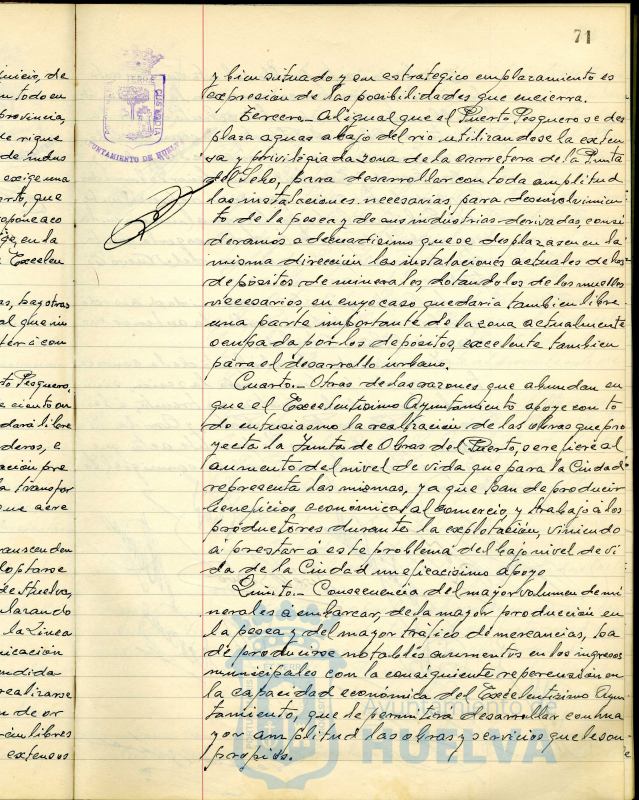 71
y bien situado y en estrategico emplazamiento es
expresión de las posibilidades que encierra.
Tercero.- Al igual que el Puerto Pesquero se des
plaza aguas abajo del rio utilizandose la exten
sa y privilegiada zona de la carretera de la Punta
del Sebo, para desarrollar con toda amplitud
las instalaciones necesarias, para desenvolvimien
to de la pesca y de sus industrias derivadas, consi
deramos adecuadisimo que se desplazasen en la
misma dirección las instalaciones actuales de los
depósitos de minerales dotandolos de los muelles
necesarios, en cuyo caso quedaria tambien libre
una parte importante de la zona actualmente
ocupada por los depósitos, excelente tambien
para el desarrollo urbano.
Cuarto.- Otras de las razones que abundan en
que el Excelentisimo Ayuntamiento apoye con to
do entusiasmo la realización de las obras que pro
yecta la Junta de Obras del Puerto, se refiere al
aumento del nivel de vida que para la Ciudad
representa las mismas, ya que han de producir
beneficios, económicos al comercio, y trabajo a los
productores durante la explotación, viniendo
á prestar á este problema del bajo nivel de vi
da de la Ciudad un eficacisimo apoyo
Quinto.- Consecuencia del mayor volumen de mi
nerales á embarcar, de la mayor producción en
la pesca y del mayor tráfico de mercancias, ha
de producirse notables aumentos en los ingresos
municipales con la consiguiente repercusión en
la capacidad económica del Excelentisimo Ayun
tamiento, que le permitirá desarrollar con ma
yor amplitud las obras y servicios que le son
propios.
AYUNTAMIENTO DE HUELVA
Ayuntamiento de
HUELVA
de
n todo en
provincia,
de
exige una
que
en la
Excelen
al que
to Pesquero,
dará libre
e
ación pre
la transfor
que
transcenden
doptarse
de Huelva,
la Linea
realizarse
libres
extensos